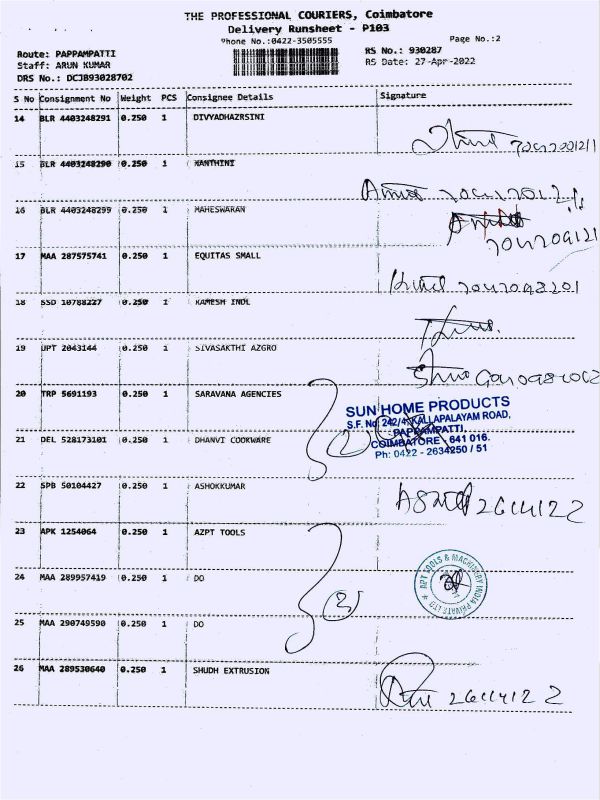 THE PROFESSIONAL COURIERS, Coimbatore
Delivery Runsheet - P103
Phone No.:0422-3505555
Page No.:2
Route: PAPPAMPATTI
RS No.: 930287
Staff: ARUN KUMAR
RS Date: 27-Apr-2022
DRS No.: DCJB93028702
S No Consignment No Weight PCS Consignee Details Signature
14 BLR 4403248291 0.250 1 DIVYADHAZRSINI
15 BLR 4403248290 0.250 1 NANTHINI
16 BLR 4403248299 0.250 1 MAHESWARAN
17 MAA 287575741 0.250 1 EQUITAS SMALL
18 SSD 10788227 0.250 1 RAMESH INDL
19 UPT 2043144 0.250 1 SIVASAKTHI AZGRO
20 TRP 5691193 0.250 1 SARAVANA AGENCIES
SUN HOME PRODUCTS
S.F. No. 242/4, KALLAPALAYAM ROAD,
PAPPAMPATTI,
21 DEL 528173101 0.250 1 DHANVI COOKWARE
COIMBATORE - 641 016.
Ph: 0422 - 2634250 / 51
22 SPB 50104427 0.250 1 ASHOKKUMAR
23 APK 1254064 0.250 1 AZPT TOOLS
24 MAA 289957419 0.250 1 DO
APT TOOLS & MACHINERY INDIA PRIVATE LTD
25 MAA 290749590 0.250 1 DO
(3)
26 MAA 289530640 0.250 1 SHUDH EXTRUSION